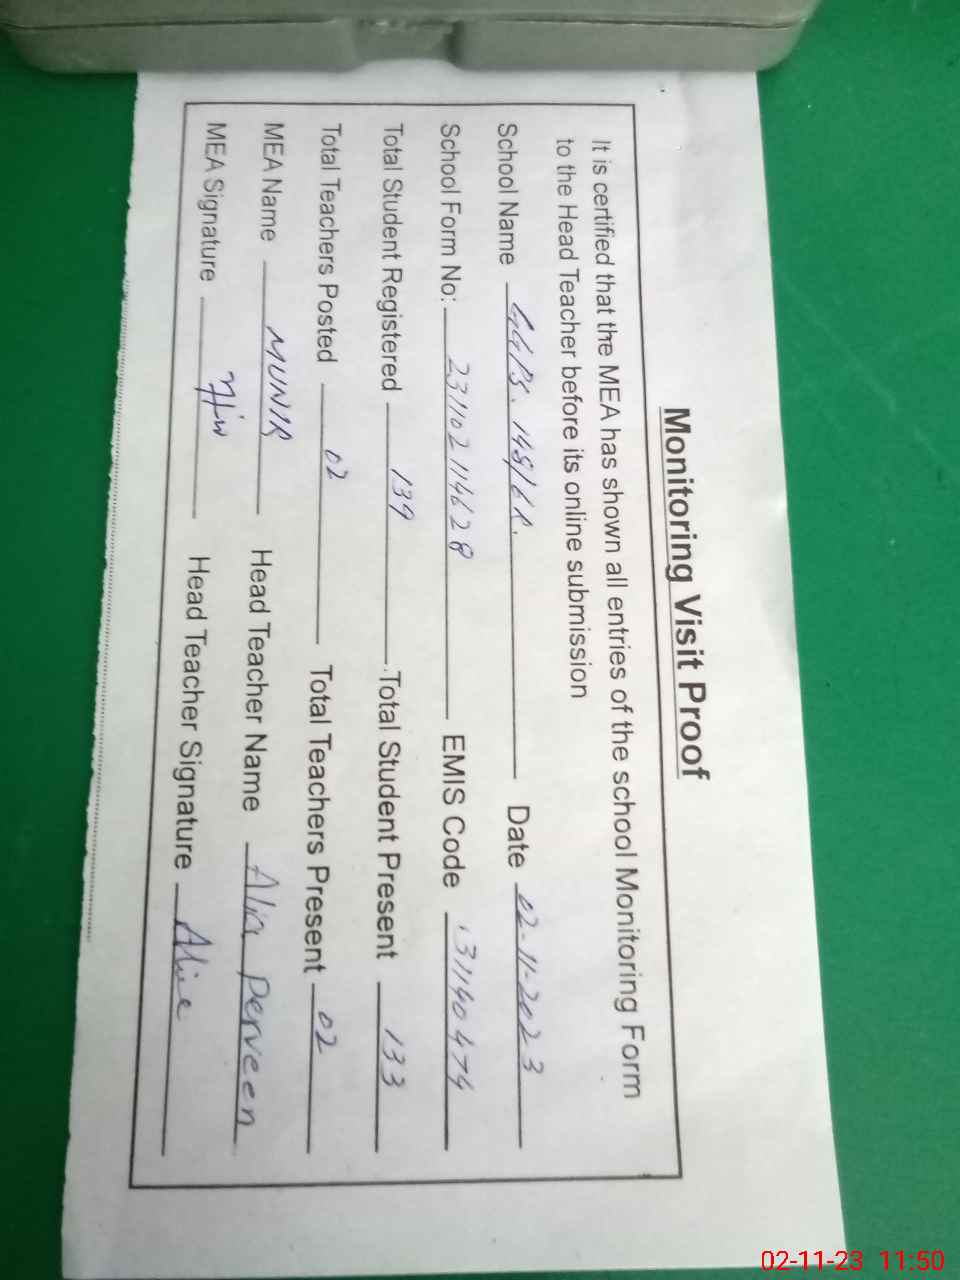 Monitoring Visit Proof
It is certified that the MEA has shown all entries of the school Monitoring Form
to the Head Teacher before its online submission
School Name GGPS. 148/6R. Date 02-11-2023
School Form No: 231102114628 EMIS Code 31140474
Total Student Registered 139 Total Student Present 133
Total Teachers Posted 02 Total Teachers Present 02
MEA Name MUNIR Head Teacher Name Alia Perveen
MEA Signature Head Teacher Signature Alia
02-11-23 11:50